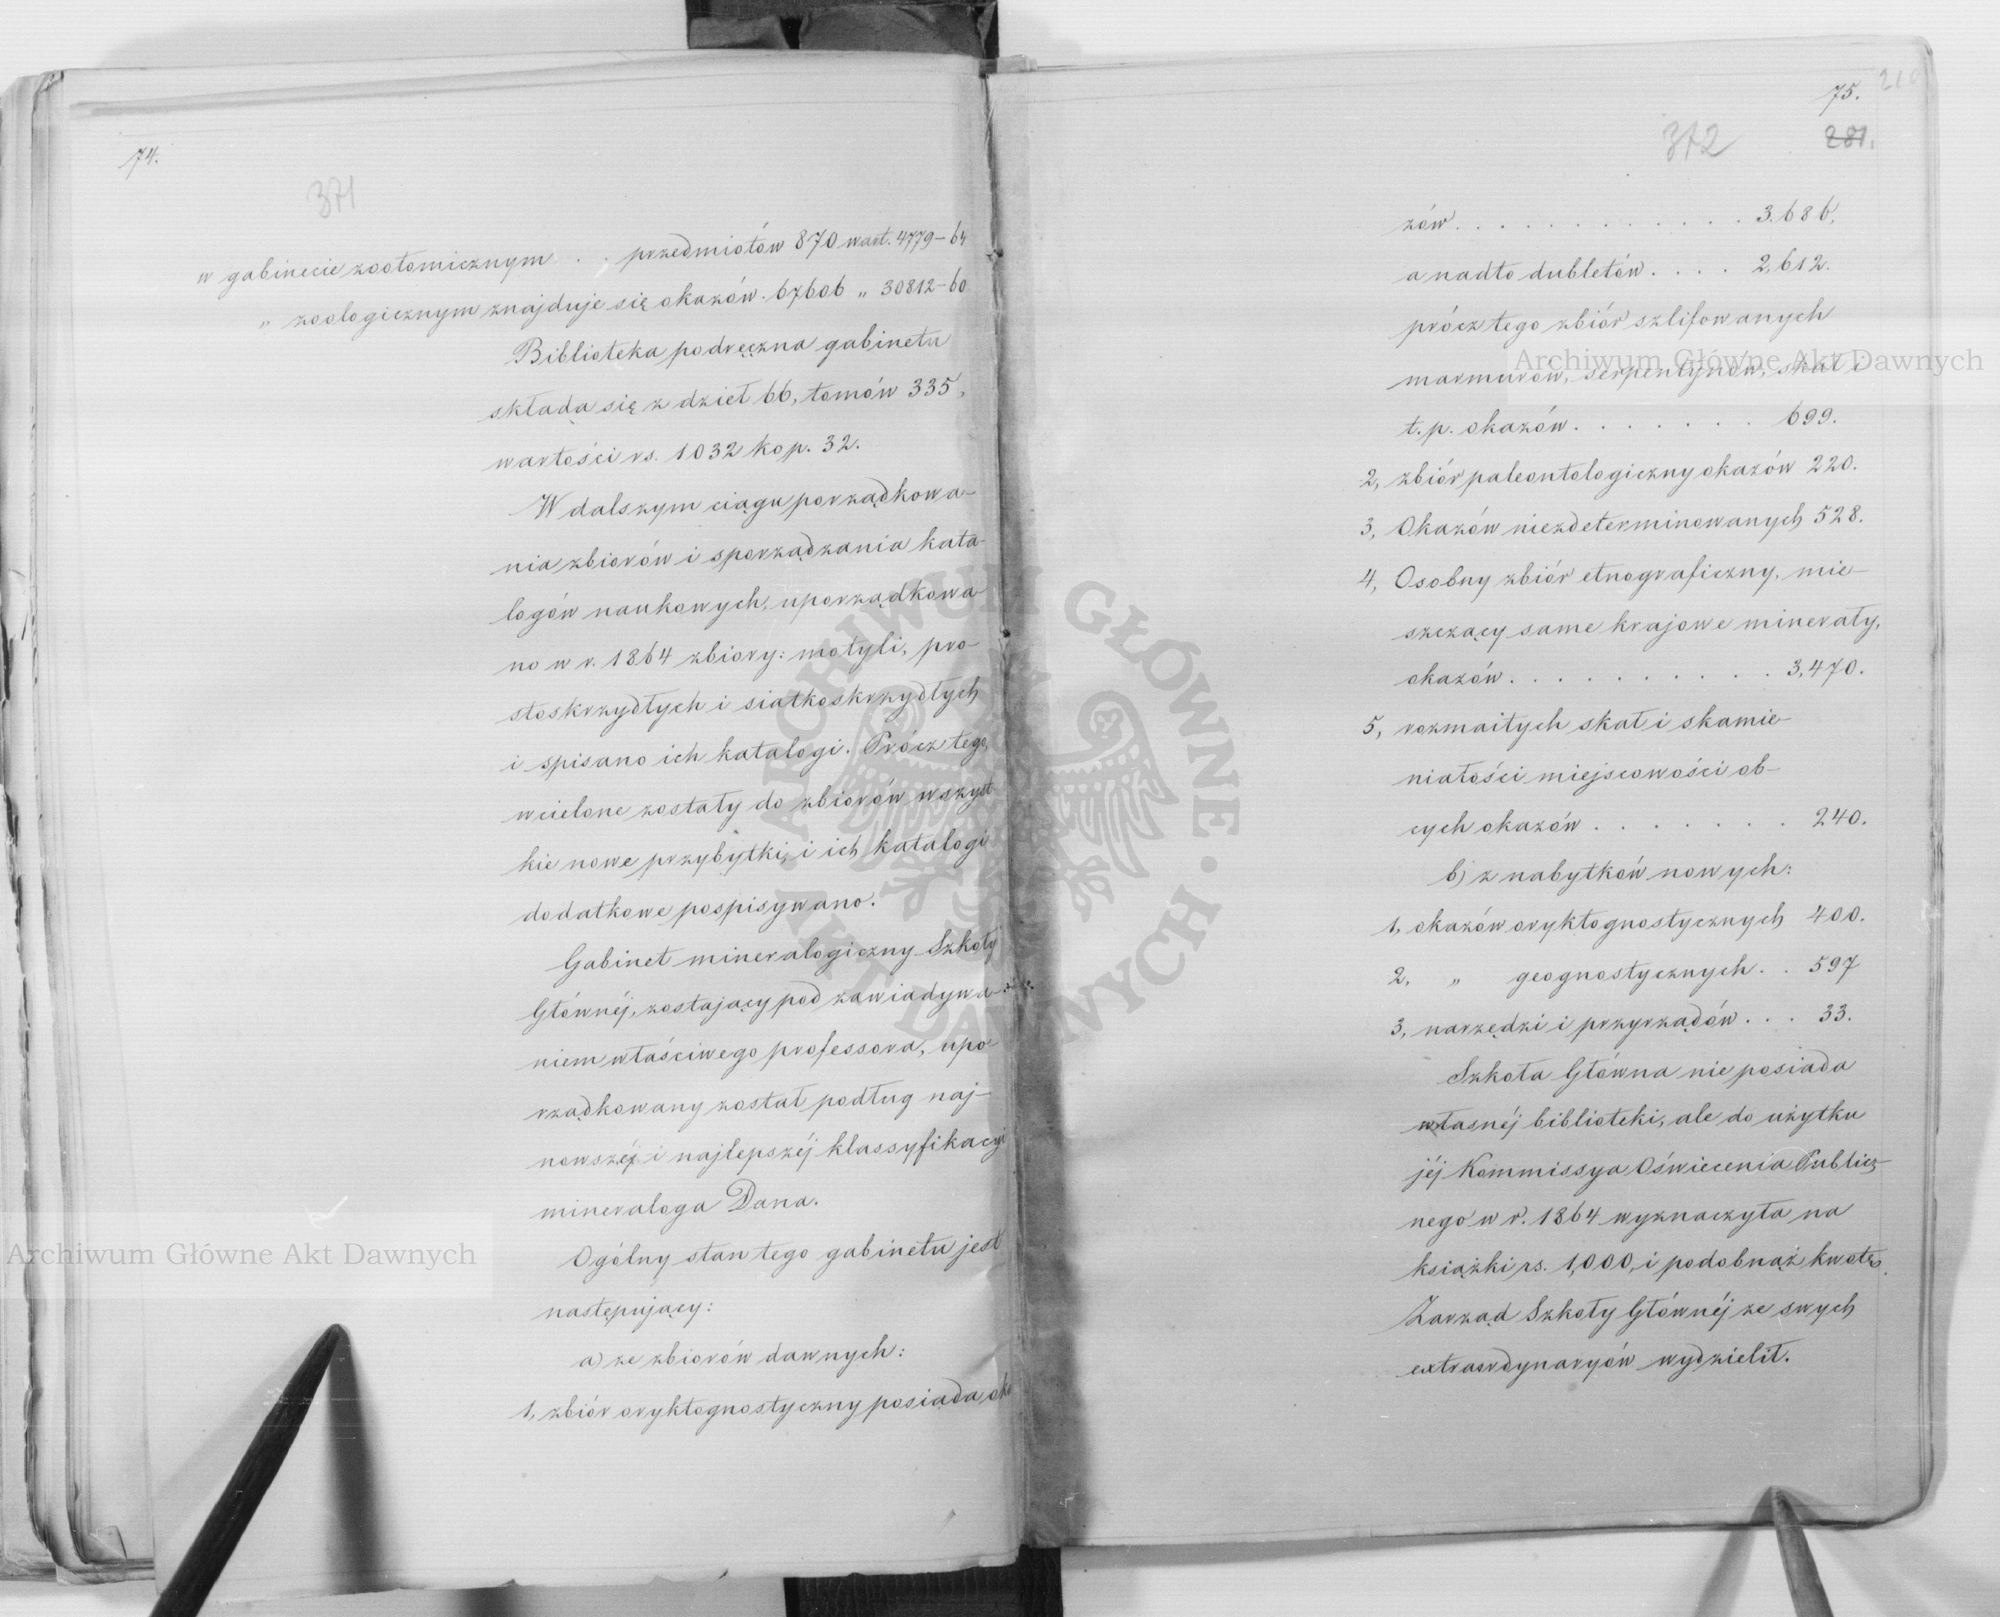 74.
371
w gabinecie zootomicznym . . przedmiotów 870 wart. 4779-64
„ zoologicznym znajduje się okazów. 67606 „ 30812-60
Biblioteka podręczna gabinetu
składa się z dzieł 66, tomów 335,
wartości rs. 1032 kop. 32.
W dalszym ciągu porządkowa-
nia zbiorów i sporządzania kata-
logów naukowych, uporządkowa-
no w r. 1864 zbiory: motyli, pro-
stoskrzydłych i siatkoskrzydłych
i spisano ich katalogi. Prócz tego,
wcielone zostały do zbiorów wszyst
kie nowe przybytki, i ich katalogi
dodatkowe pospisywano.
Gabinet mineralogiczny Szkoły
Głównéj, zostający pod zawiadywa-
niem właściwego professora, upo-
rządkowany został podług naj-
nowszéj i najlepszéj klassyfikacyi
mineraloga Dana.
Ogólny stan tego gabinetu jest
następujący:
a) ze zbiorów dawnych:
1, zbiór oryktognostyczny posiada oka
75.
372
281.
zów . . . . . . . . . . . . 3.686.
a nadto dubletów . . . . 2,612.
prócz tego zbiór szlifowanych
marmurów, serpentynów, skał i
t. p. okazów . . . . . . . 699.
2, zbiór paleontologiczny okazów 220.
3, Okazów niezdeterminowanych 528.
4, Osobny zbiór etnograficzny, mie-
szczący same krajowe minerały,
okazów . . . . . . . . . . 3,470.
5, rozmaitych skał i skamie-
niałości miejscowości ob-
cych okazów . . . . . . . . 240.
b) z nabytków nowych:
1, okazów oryktognostycznych 400.
2, „ geognostycznych . . 597
3, narzędzi i przyrządów . . . 33.
Szkoła Główna nie posiada
własnéj biblioteki, ale do użytku
jéj Kommissya Oświecenia Publicz-
nego w r. 1864 wyznaczyła na
książki rs. 1,000, i podobnąż kwotę
Zarząd Szkoły Głównéj ze swych
extraordynaryów wydzielił.
Archiwum Główne Akt Dawnych
Archiwum Główne Akt Dawnych
ARCHIWUM GŁÓWNE · AKT DAWNYCH ·